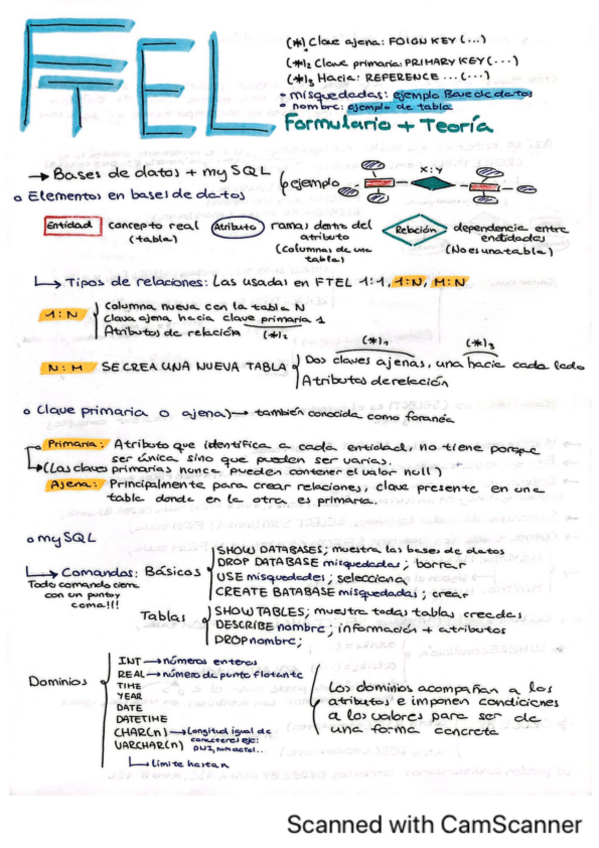 FTEL
(*)₁ Clave ajena: FOIGN KEY (...)
(*)₂ Clave primaria: PRIMARY KEY (...)
(*)₃ Hacia: REFERENCE ... (...)
• misquedadas: ejemplo Base de datos
• nombre: ejemplo de tabla
Formulario + Teoría
→ Bases de datos + mySQL (ejemplo X:Y
o Elementos en bases de datos
Entidad concepto real (tabla)
Atributo ramas dentro del atributo (columnas de una tabla)
Relación dependencia entre entidades (No es una tabla)
↳ Tipos de relaciones: Las usadas en FTEL 1:1, 1:N, M:N
1:N { Columna nueva con la tabla N
Clava ajena hacia clave primaria 1
Atributos de relación (*)₂
(*)₁ (*)₃
N:M SE CREA UNA NUEVA TABLA { Dos claves ajenas, una hacia cada lado
Atributos de relación
o Clave primaria o ajena) → también conocida como foranéa
Primaria: Atributo que identifica a cada entidad, no tiene porque
ser única sino que pueden ser varias.
(Las claves primarias nunca pueden contener el valor null)
Ajena: Principalmente para crear relaciones, clave presente en una
tabla donde en la otra es primaria.
o mySQL
↳ Comandos: Básicos { SHOW DATABASES; muestra las bases de datos
DROP DATABASE misquedadas; borrar
USE misquedades; selecciona
CREATE BATABASE misquedadas; crear
Todo comando cierra
con un punto y
coma!!!
Tablas { SHOW TABLES; muestra todas tablas creadas
DESCRIBE nombre; información + atributos
DROP nombre;
Dominios { INT → números enteros
REAL → número de punto flotante
TIME
YEAR
DATE
DATETIME
CHAR(n) → Longitud igual de
caracteres ej:
VARCHAR(n)
↳ Límite hasta n
Los dominios acompañan a los
atributos e imponen condiciones
a los valores para ser de
una forma concreta
Scanned with CamScanner